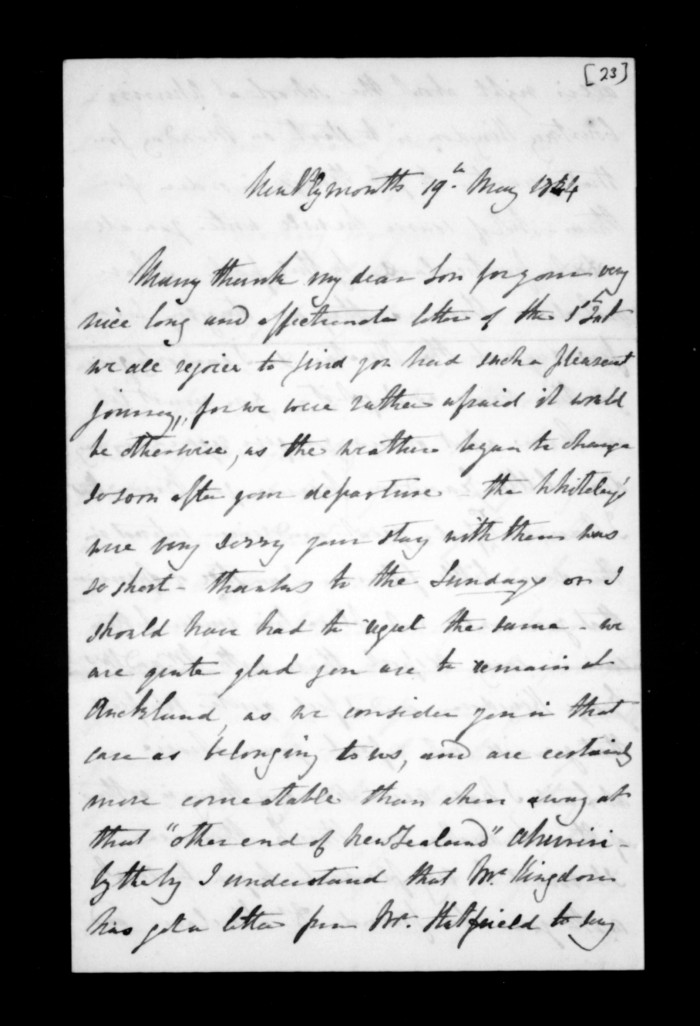 [23]
New Plymouth 19th May 1854
Many thanks my dear Son for your very
nice long and affectionate letter of the 1st Inst
we all rejoice to find you had such a pleasant
journey, for we were rather afraid it would
be otherwise, as the weather began to change
so soon after your departure the Whiteley's
were very sorry your stay with them was
so short - thanks to the Sundays or I
should have had to regret the same - we
are quite glad you are to remain at
Auckland, as we consider you in that
case as belonging to us, and are certainly
more comeatable than when away at
that "other end of New Zealand" Ahuriri -
by the by I understand that Mr Kingdon
has got a letter from Mr. Hadfield to say